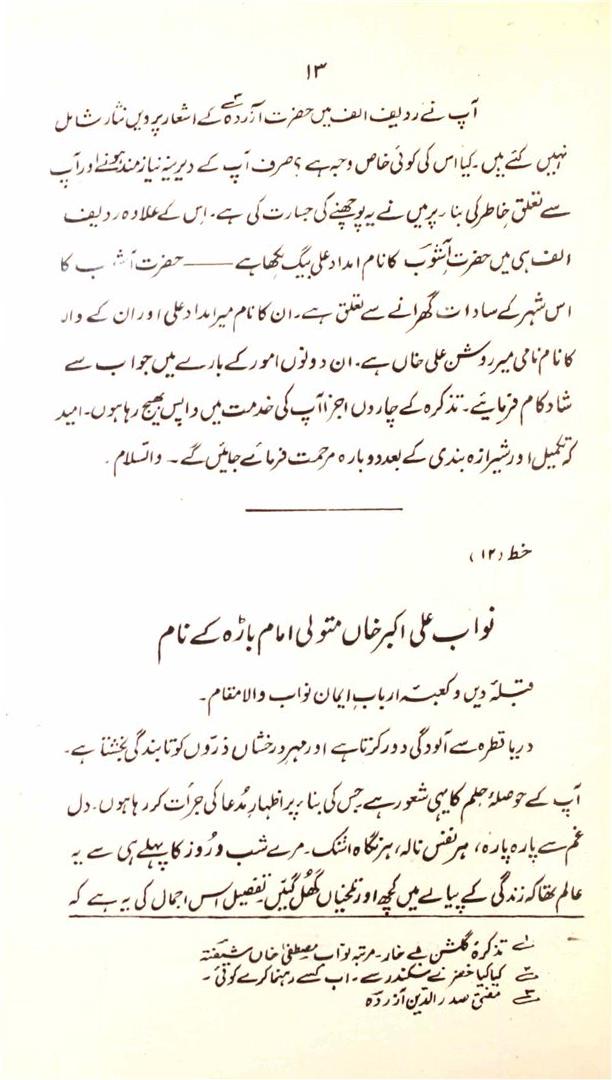 ۱۳
آپ نے ردیف الف میں حضرت آزردہ۳ کے اشعار پر دیں نثار شامل
نہیں کئے ہیں۔ کیا اس کی کوئی خاص وجہ ہے؟ صرف آپ کے دیرینہ نیاز مند ہونے اور آپ
سے تعلق خاطر کی بنا ر پر میں نے یہ پوچھنے کی جسارت کی ہے۔ اس کے علاوہ ردیف
الف ہی میں حضرت آشوب کا نام امداد علی بیگ لکھا ہے —— حضرت آشوب کا
اس شہر کے سادات گھرانے سے تعلق ہے۔ ان کا نام میر امداد علی اور ان کے والد
کا نام نامی میر روشن علی خاں ہے۔ ان دونوں امور کے بارے میں جواب سے
شاد کام فرمائیے۔ تذکرہ کے چاروں اجزا آپ کی خدمت میں واپس بھیج رہا ہوں۔ امید
کہ تکمیل اور شیرازہ بندی کے بعد دوبارہ مرحمت فرمائے جائیں گے۔ والسّلام۔
خط (۱۲)
نواب علی اکبر خاں متولی امام باڑہ کے نام
قبلۂ دیں و کعبۂ اربابِ ایمان نواب والا مقام۔
دریا قطرہ سے آلودگی دور کرتا ہے اور مہر درخشاں ذرّوں کو تابندگی بخشتا ہے۔
آپ کے حوصلۂ حلم کا یہی شعور ہے جس کی بنا پر اظہار مدّعا کی جرأت کر رہا ہوں۔ دل
غم سے پارہ پارہ، ہر نفس نالہ، ہر نگاہ اشک۔ مرے شب و روز کا پہلے ہی سے یہ
عالم تھا کہ زندگی کے پیالے میں کچھ اور تلخیاں گھُل گئیں۔ تفصیل اس اجمال کی یہ ہے کہ
۱ تذکرۂ گلشن بے خار۔ مرتبہ نواب مصطفیٰ خاں شیفتہ
۲ کیا کیا خضر نے سکندر سے۔ اب کسے رہنما کرے کوئی۔
۳ مفتی صدر الدین آزردہ